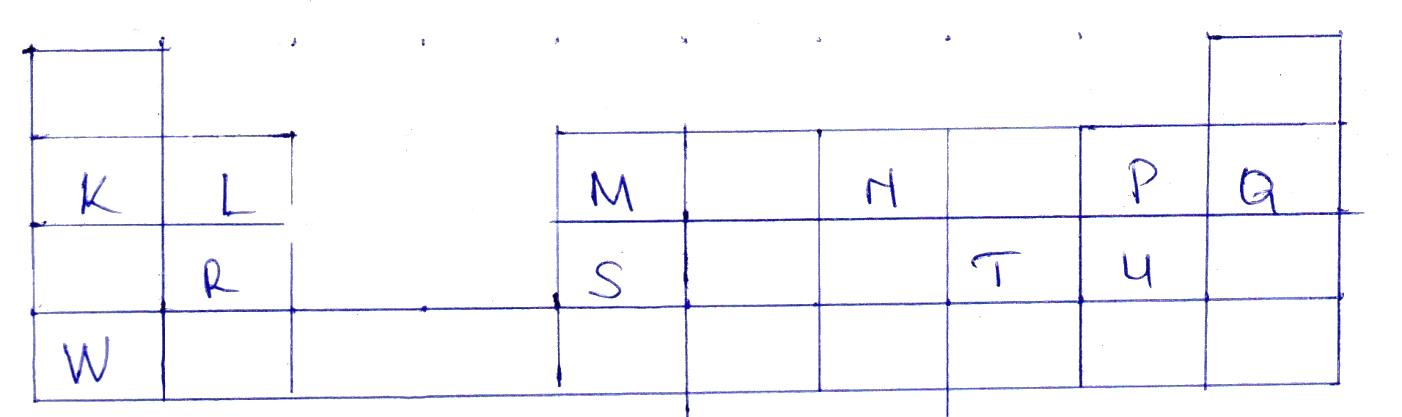 K L M N P Q
R S T U
W